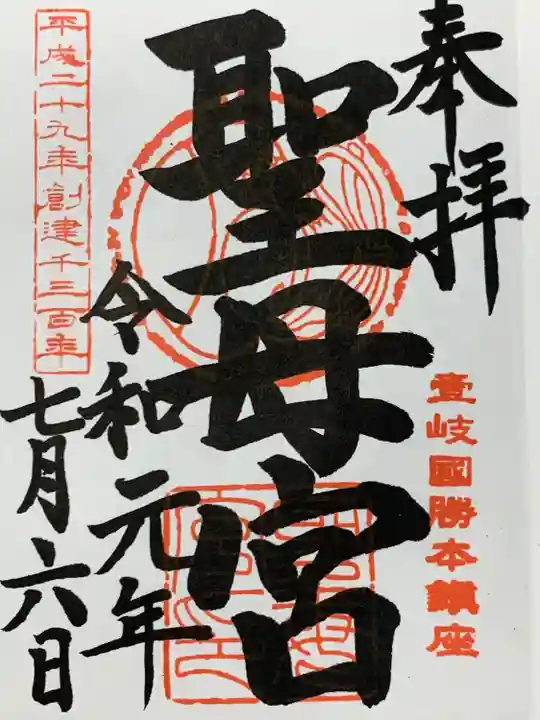 奉拝
壹岐國勝本鎮座
聖母宮
令和元年
七月六日
平成二十九年創建千三百年